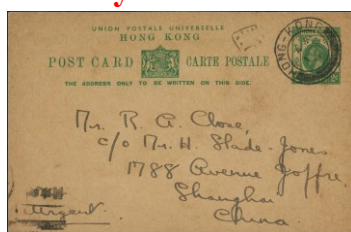 UNION POSTALE UNIVERSELLE
HONG KONG
POST CARD CARTE POSTALE
THE ADDRESS ONLY TO BE WRITTEN ON THIS SIDE.
HONG-KONG
Mr. R. A. Close,
c/o Mr. H. Slade-Jones
1788 Avenue Joffre
Shanghai
China.
Urgent.